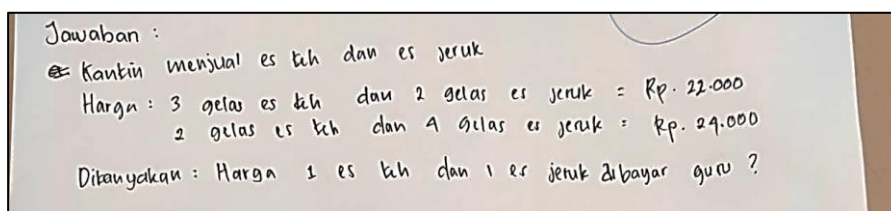 Jawaban :
Kantin menjual es teh dan es jeruk
Harga : 3 gelas es teh dan 2 gelas es jeruk = Rp. 22.000
2 gelas es teh dan 4 gelas es jeruk = Rp. 24.000
Ditanyakan : Harga 1 es teh dan 1 es jeruk dibayar guru ?